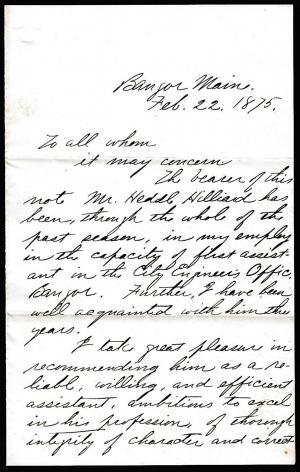 Bangor Maine.
Feb. 22. 1875.
To all whom
it may concern
The bearer of this
not Mr. Hilliard has
been, through the whole of the
past season, in my employ
in the capacity of first assist-
ant in the City Engineers Office,
Bangor. Further, I have been
well acquainted with him three
years.
I take great pleasure in
recommending him as a re-
liable, willing, and efficient
assistant, ambitious to excel
in his profession, of thorough
integrity of character and correct